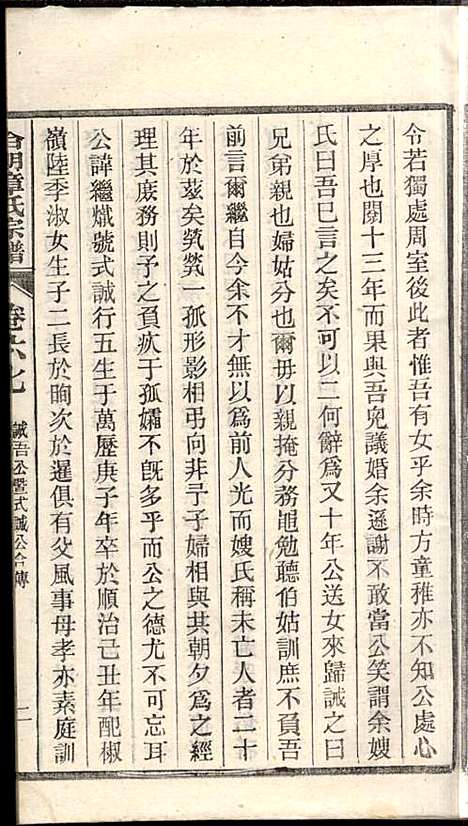 令若獨處周室後此者惟吾有女乎余時方童雅亦不知公處心
之厚也閱十三年而果與吾兒議婚余遜謝不敢當公笑謂余嫂
氏曰吾巳言之矣不可以二何辭爲又十年公送女來歸誡之曰
兄弟親也婦姑分也爾毋以親掩分務黽勉聽伯姑訓庶不負吾
前言爾繼自今余不才無以爲前人光而嫂氏稱未亡人者二十
年於茲矣煢煢一孤形影相弔向非予子婦相與共朝夕爲之經
理其庶務則予之負疚于孤孀不旣多乎而公之德尤不可忘耳
公諱繼熾號式誠行五生于萬歷庚子年卒於順治己丑年配椒
嶺陸季淑女生子二長於晌次於暹俱有父風事母孝亦素庭訓
章氏宗譜
卷六七
誠吾公暨式誠公合傳
二